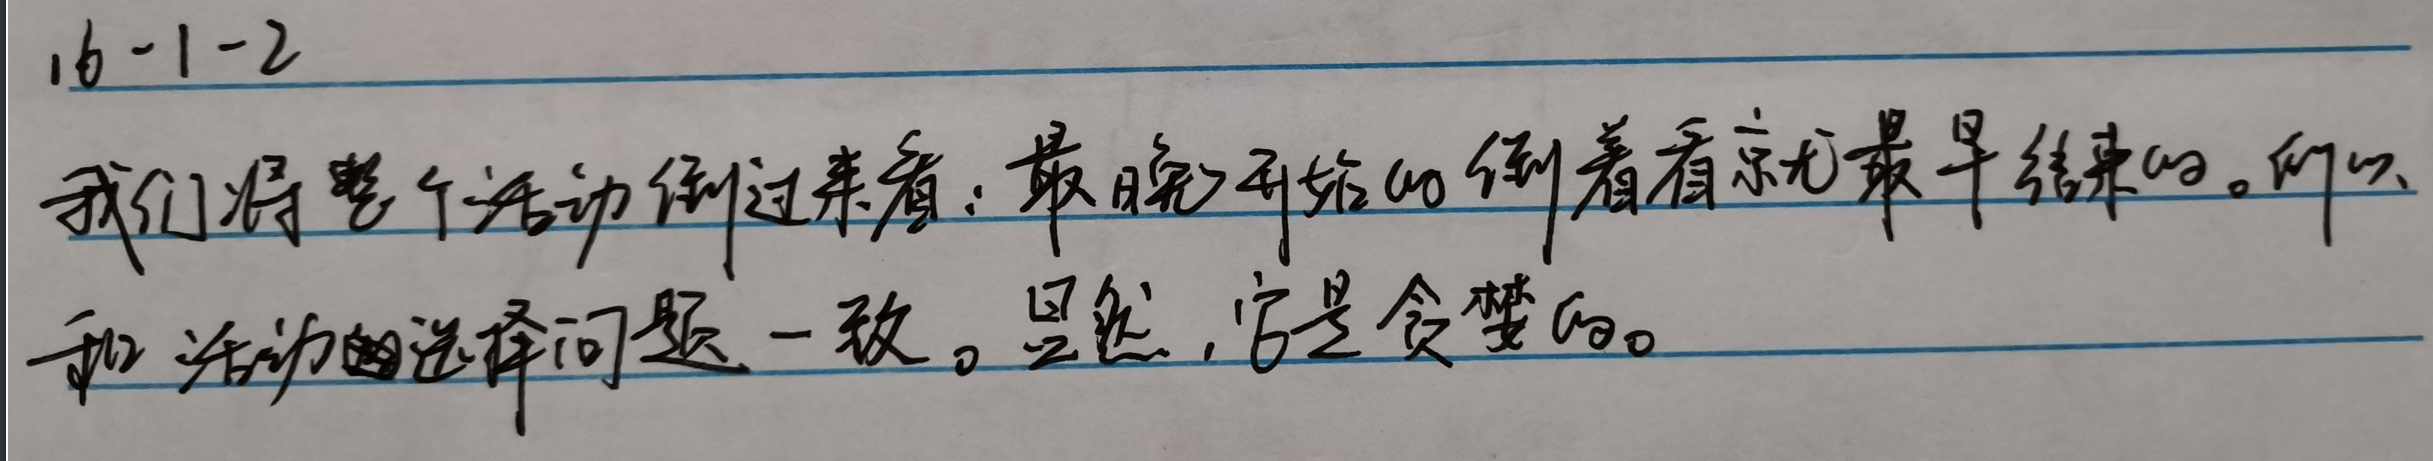 16-1-2
我们将整个活动倒过来看：最晚开始的倒着看就是最早结束的。所以
和活动选择问题一致。显然，它是贪婪的。